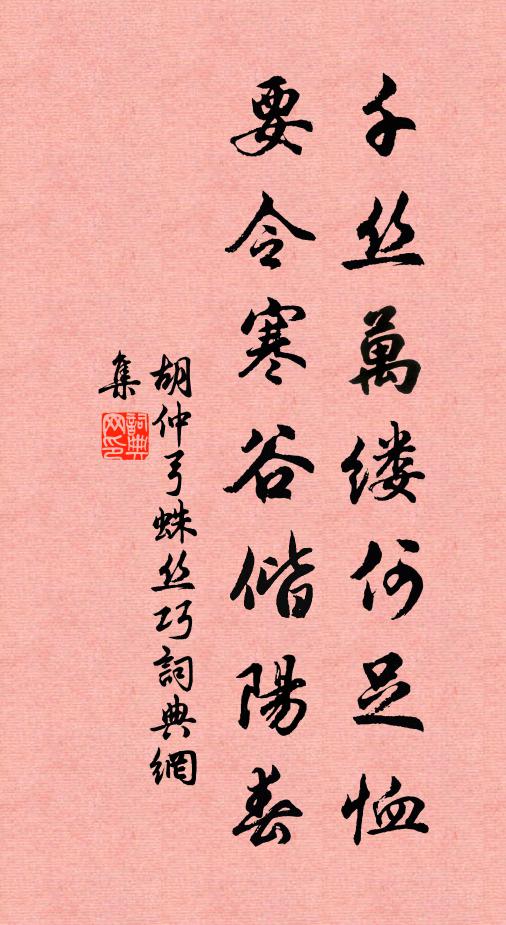 千丝萬缕何足恤
要令寒谷偕陽春
胡仲弓蛛丝巧詞典網
集
詞典
网印